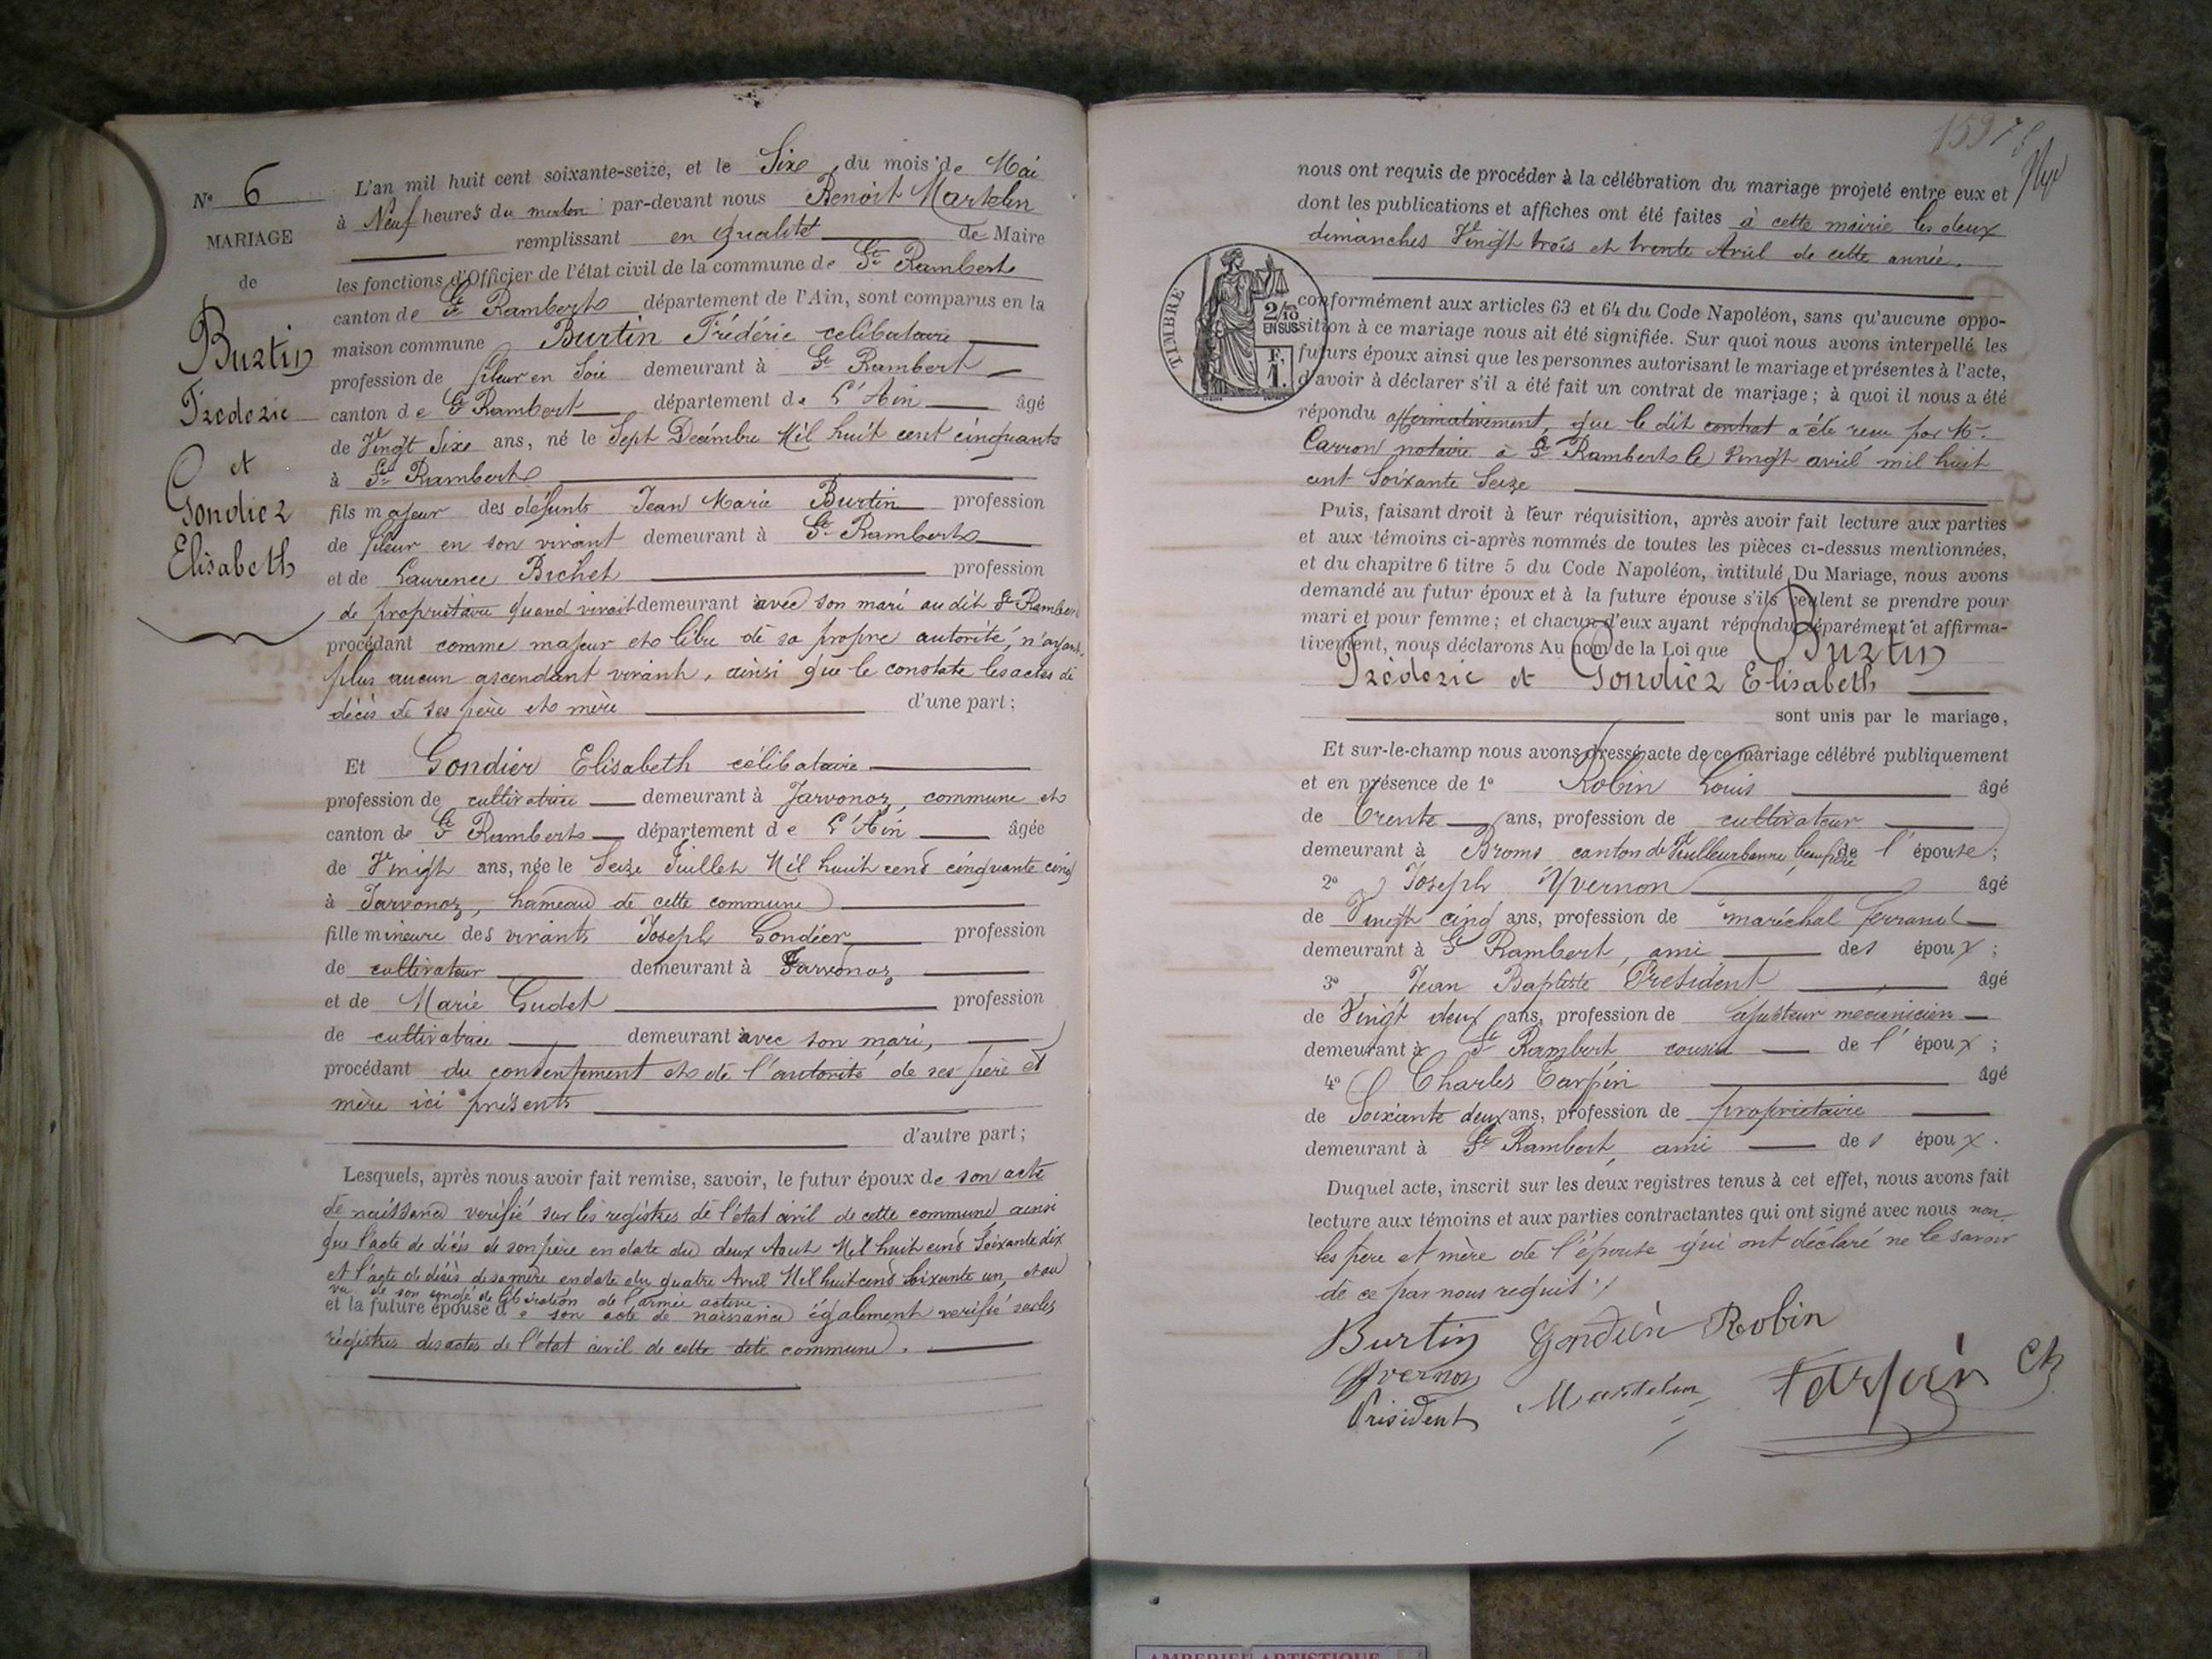 N° 6
MARIAGE
de
Burtin
Frédéric
et
Gondier
Elisabeth
L'an mil huit cent soixante-seize, et le Sixe du mois de Mai
à Neuf heures du matin par-devant nous Benoit Martelin
remplissant en qualité de Maire
les fonctions d'Officier de l'état civil de la commune de St Rambert
canton de St Rambert département de l'Ain, sont comparus en la
maison commune Burtin Frédéric célibataire
profession de fileur en Soie demeurant à St Rambert
canton de St Rambert département de L'Ain âgé
de Vingt Sixe ans, né le Sept Decémbre Mil huit cent cinquante
à St Rambert
fils majeur des défunts Jean Marie Burtin profession
de fileur en son vivant demeurant à St Rambert
et de Laurence Bichet profession
de propriétaire quand vivait demeurant avec son mari au dit St Rambert
procédant comme majeur et libre de sa propre autorité, n'ayant
plus aucun ascendant vivant, ainsi que le constate les actes de
décès de ses père et mère d'une part;
Et Gondier Elisabeth célibataire
profession de cultivatrice demeurant à Javornoz, commune et
canton de St Rambert département de L'Ain âgée
de Vingt ans, née le Seize Juillet Mil huit cent cinquante cinq
à Javornoz, hameau de cette commune
fille mineure des vivants Joseph Gondier profession
de cultivateur demeurant à Javornoz
et de Marie Gudet profession
de cultivatrice demeurant avec son mari,
procédant du consentement et de l'autorité de ses père et
mère ici présents
d'autre part;
Lesquels, après nous avoir fait remise, savoir, le futur époux de son acte
de naissance vérifié sur les registres de l'état civil de cette commune ainsi
que l'acte de décès de son père en date du deux Aout Mil huit cent Soixante dix
et l'acte de décès de sa mère en date du quatre Avril Mil huit cent soixante un, et au
vu de son congé de libération de l'armée active.
et la future épouse de son acte de naissance également vérifié sur les
régistres des actes de l'état civil de cette dite commune.
159
nous ont requis de procéder à la célébration du mariage projeté entre eux et
dont les publications et affiches ont été faites à cette mairie les deux
dimanches Vingt trois et trente Avril de cette année.
TIMBRE
2/10
EN SUS
F.
1.
conformément aux articles 63 et 64 du Code Napoléon, sans qu'aucune oppo-
sition à ce mariage nous ait été signifiée. Sur quoi nous avons interpellé les
futurs époux ainsi que les personnes autorisant le mariage et présentes à l'acte,
d'avoir à déclarer s'il a été fait un contrat de mariage; à quoi il nous a été
répondu affirmativement, que le dit contrat a été reçu par Me
Carron notaire à St Rambert le Vingt avril mil huit
cent Soixante Seize
Puis, faisant droit à leur réquisition, après avoir fait lecture aux parties
et aux témoins ci-après nommés de toutes les pièces ci-dessus mentionnées,
et du chapitre 6 titre 5 du Code Napoléon, intitulé Du Mariage, nous avons
demandé au futur époux et à la future épouse s'ils veulent se prendre pour
mari et pour femme; et chacun d'eux ayant répondu séparément et affirma-
tivement, nous déclarons Au nom de la Loi que Burtin
Frédéric et Gondier Elisabeth
sont unis par le mariage,
Et sur-le-champ nous avons dressé acte de ce mariage célébré publiquement
et en présence de 1° Robin Louis âgé
de Trente ans, profession de cultivateur
demeurant à Brons canton de Villeurbanne, beau frère de l'épouse;
2° Joseph Yvernon âgé
de Vingt cinq ans, profession de maréchal ferrand
demeurant à St Rambert, ami des époux;
3° Jean Baptiste Président âgé
de Vingt deux ans, profession de ajusteur mécanicien
demeurant à St Rambert cousin de l'époux;
4° Charles Tarpin âgé
de Soixante deux ans, profession de propriétaire
demeurant à St Rambert, ami des époux.
Duquel acte, inscrit sur les deux registres tenus à cet effet, nous avons fait
lecture aux témoins et aux parties contractantes qui ont signé avec nous non
les père et mère de l'épouse qui ont déclaré ne le savoir
de ce par nous requit
Burtin Gondier Robin
Yvernon Martelin Tarpin Ch
Président
AMBERIEU ARTISTIQUE